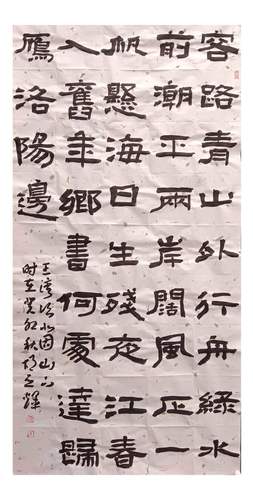 客路青山外行舟綠水
前潮平兩岸闊風正一
帆懸海日生殘夜江春
入舊年鄉書何處達歸
鴈洛陽邊
王灣次北固山下
时在癸卯秋